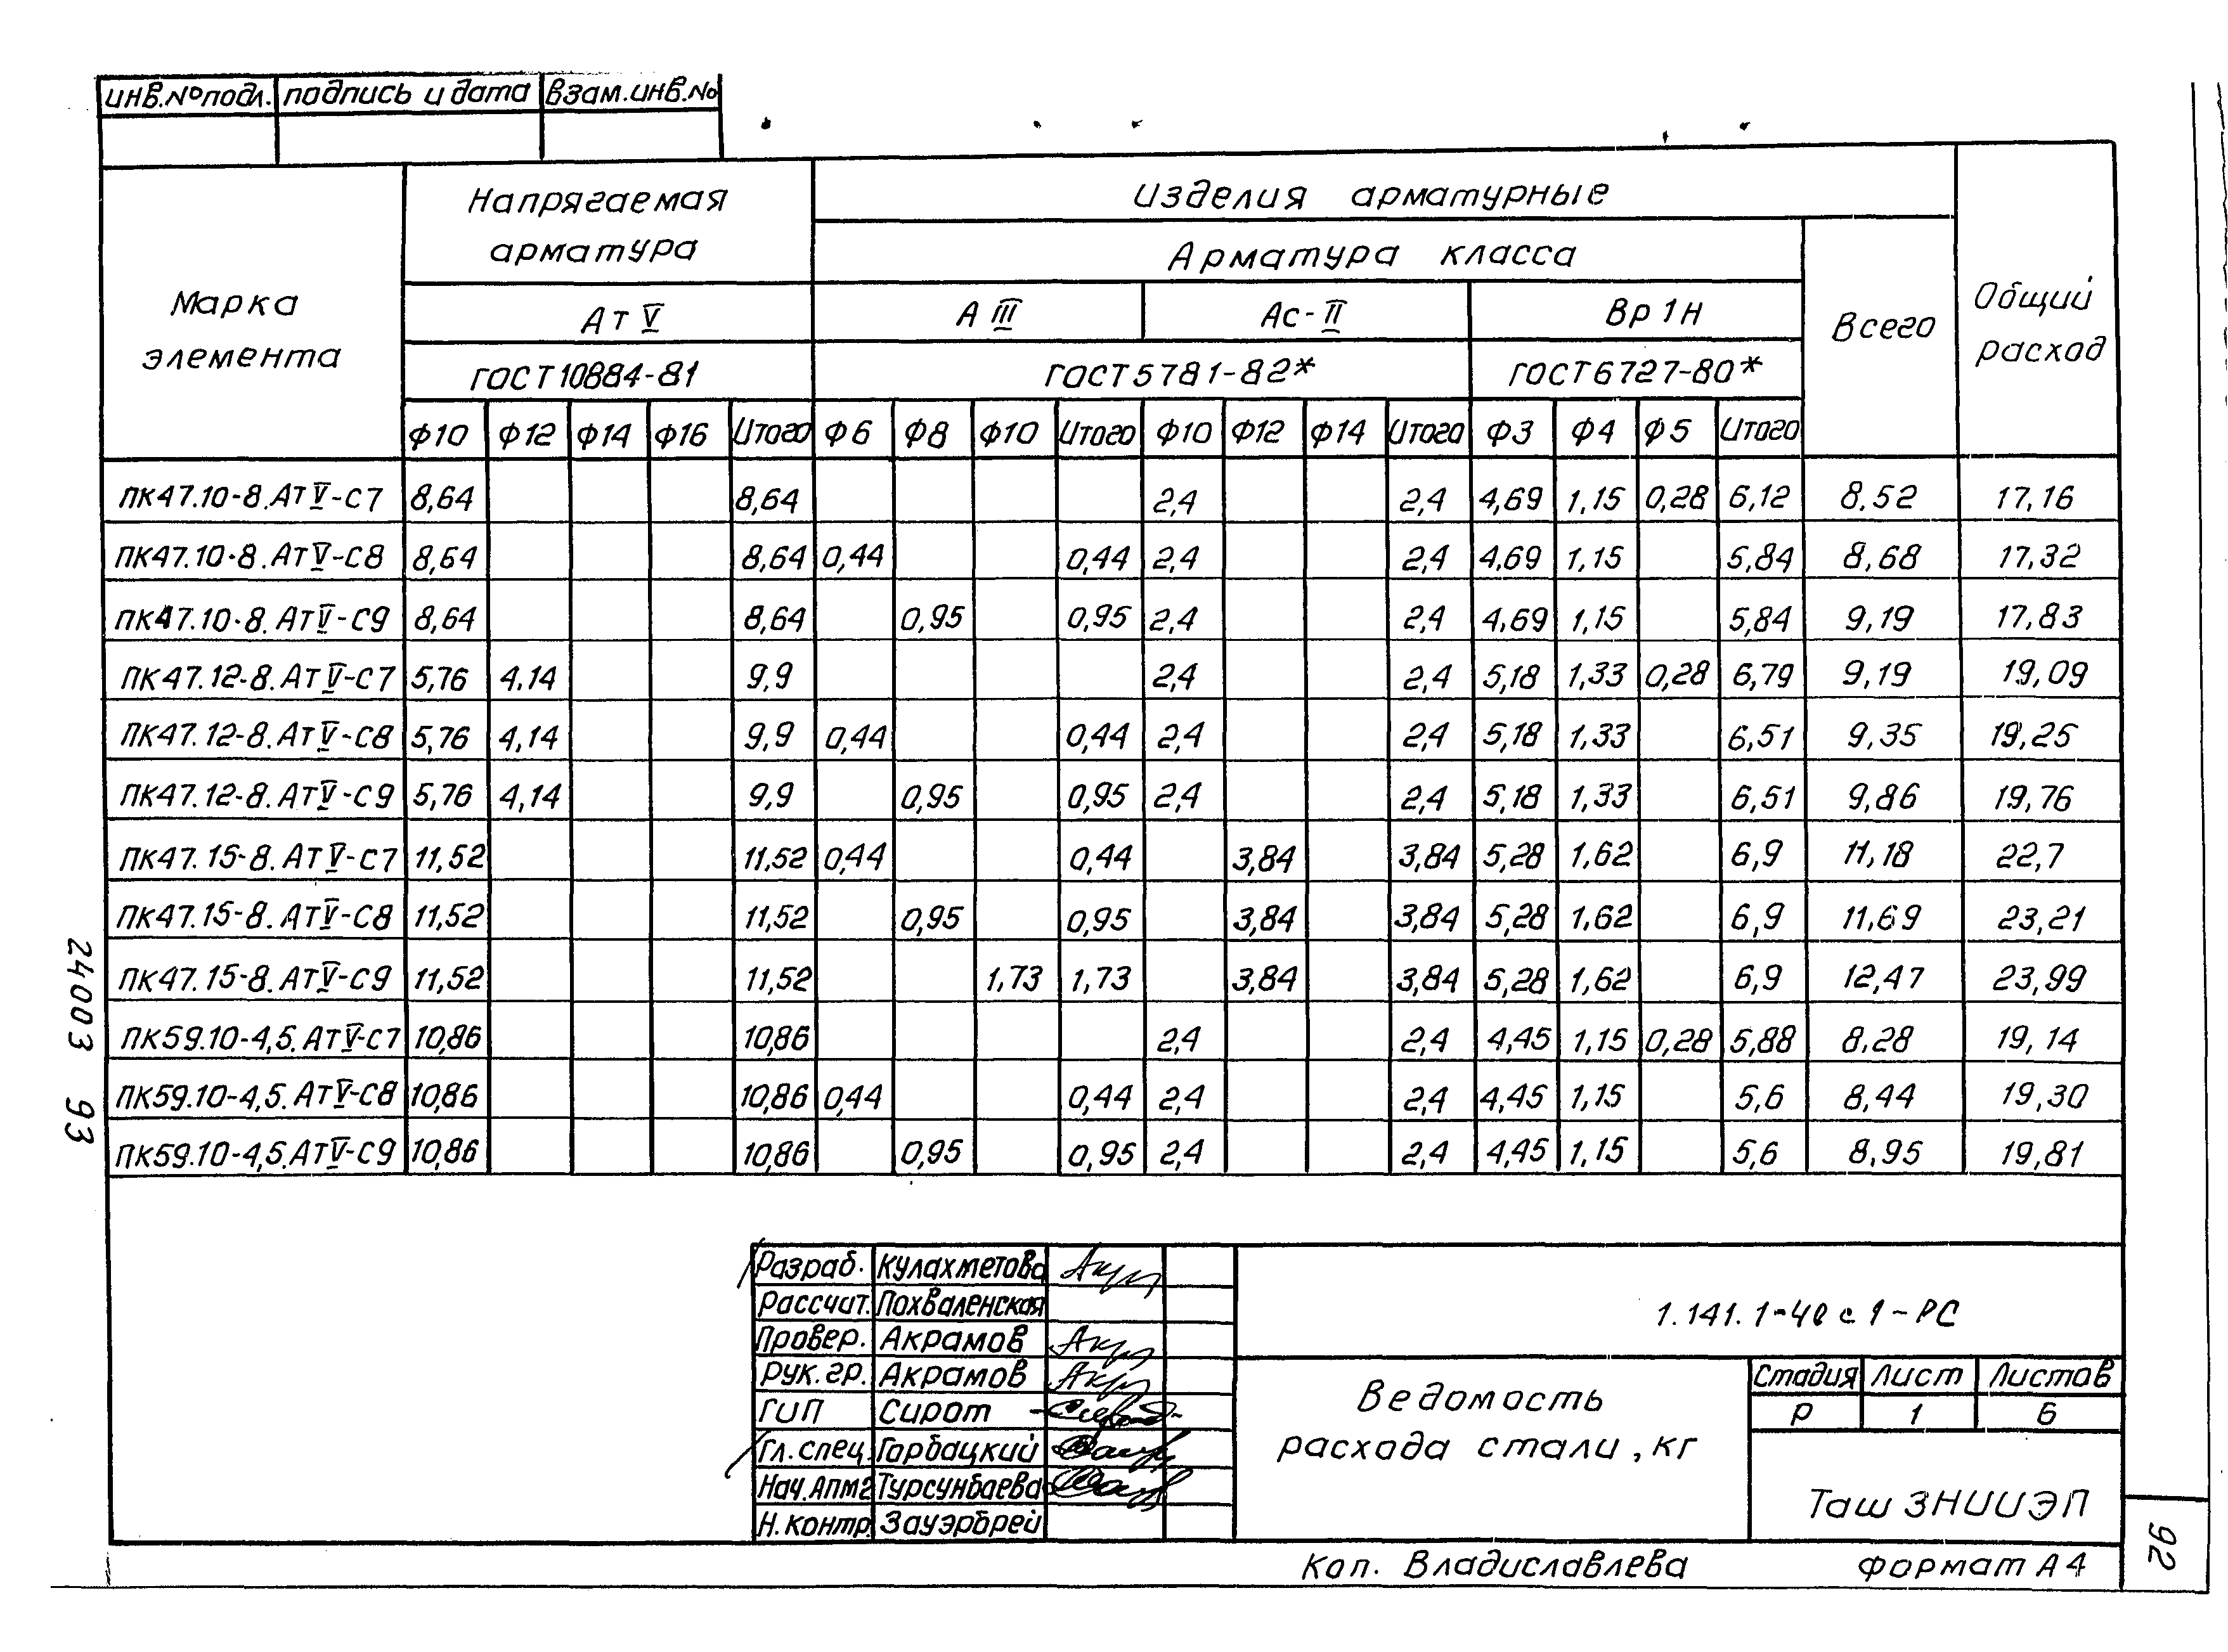 инв.№подл. подпись и дата взам.инв.№
Марка элемента
Напрягаемая арматура
Изделия арматурные
Общий расход
Арматура класса
Всего
Ат V
А III
Ас-II
Вр 1Н
ГОСТ 10884-81
ГОСТ 5781-82*
ГОСТ 6727-80*
Ф10 Ф12 Ф14 Ф16 Итого Ф6 Ф8 Ф10 Итого Ф10 Ф12 Ф14 Итого Ф3 Ф4 Ф5 Итого
ПК47.10-8.АтV-С7 8,64 8,64 2,4 2,4 4,69 1,15 0,28 6,12 8,52 17,16
ПК47.10-8.АтV-С8 8,64 8,64 0,44 0,44 2,4 2,4 4,69 1,15 5,84 8,68 17,32
ПК47.10-8.АтV-С9 8,64 8,64 0,95 0,95 2,4 2,4 4,69 1,15 5,84 9,19 17,83
ПК47.12-8.АтV-С7 5,76 4,14 9,9 2,4 2,4 5,18 1,33 0,28 6,79 9,19 19,09
ПК47.12-8.АтV-С8 5,76 4,14 9,9 0,44 0,44 2,4 2,4 5,18 1,33 6,51 9,35 19,25
ПК47.12-8.АтV-С9 5,76 4,14 9,9 0,95 0,95 2,4 2,4 5,18 1,33 6,51 9,86 19,76
ПК47.15-8.АтV-С7 11,52 11,52 0,44 0,44 3,84 3,84 5,28 1,62 6,9 11,18 22,7
ПК47.15-8.АтV-С8 11,52 11,52 0,95 0,95 3,84 3,84 5,28 1,62 6,9 11,69 23,21
ПК47.15-8.АтV-С9 11,52 11,52 1,73 1,73 3,84 3,84 5,28 1,62 6,9 12,47 23,99
ПК59.10-4,5.АтV-С7 10,86 10,86 2,4 2,4 4,45 1,15 0,28 5,88 8,28 19,14
ПК59.10-4,5.АтV-С8 10,86 10,86 0,44 0,44 2,4 2,4 4,45 1,15 5,6 8,44 19,30
ПК59.10-4,5.АтV-С9 10,86 10,86 0,95 0,95 2,4 2,4 4,45 1,15 5,6 8,95 19,81
24003 93
Разраб. Кулахметова
Рассчит. Похваленская
Провер. Акрамов
Рук.гр. Акрамов
ГИП Сирот
Гл.спец. Горбацкий
Нач.Апм2 Турсунбаева
Н.контр. Зауэрбрей
1.141.1-40с 1-РС
Ведомость
расхода стали, кг
Стадия Лист Листов
Р 1 6
Таш ЗНИИЭП
Коп. Владиславлева
формат А4
92